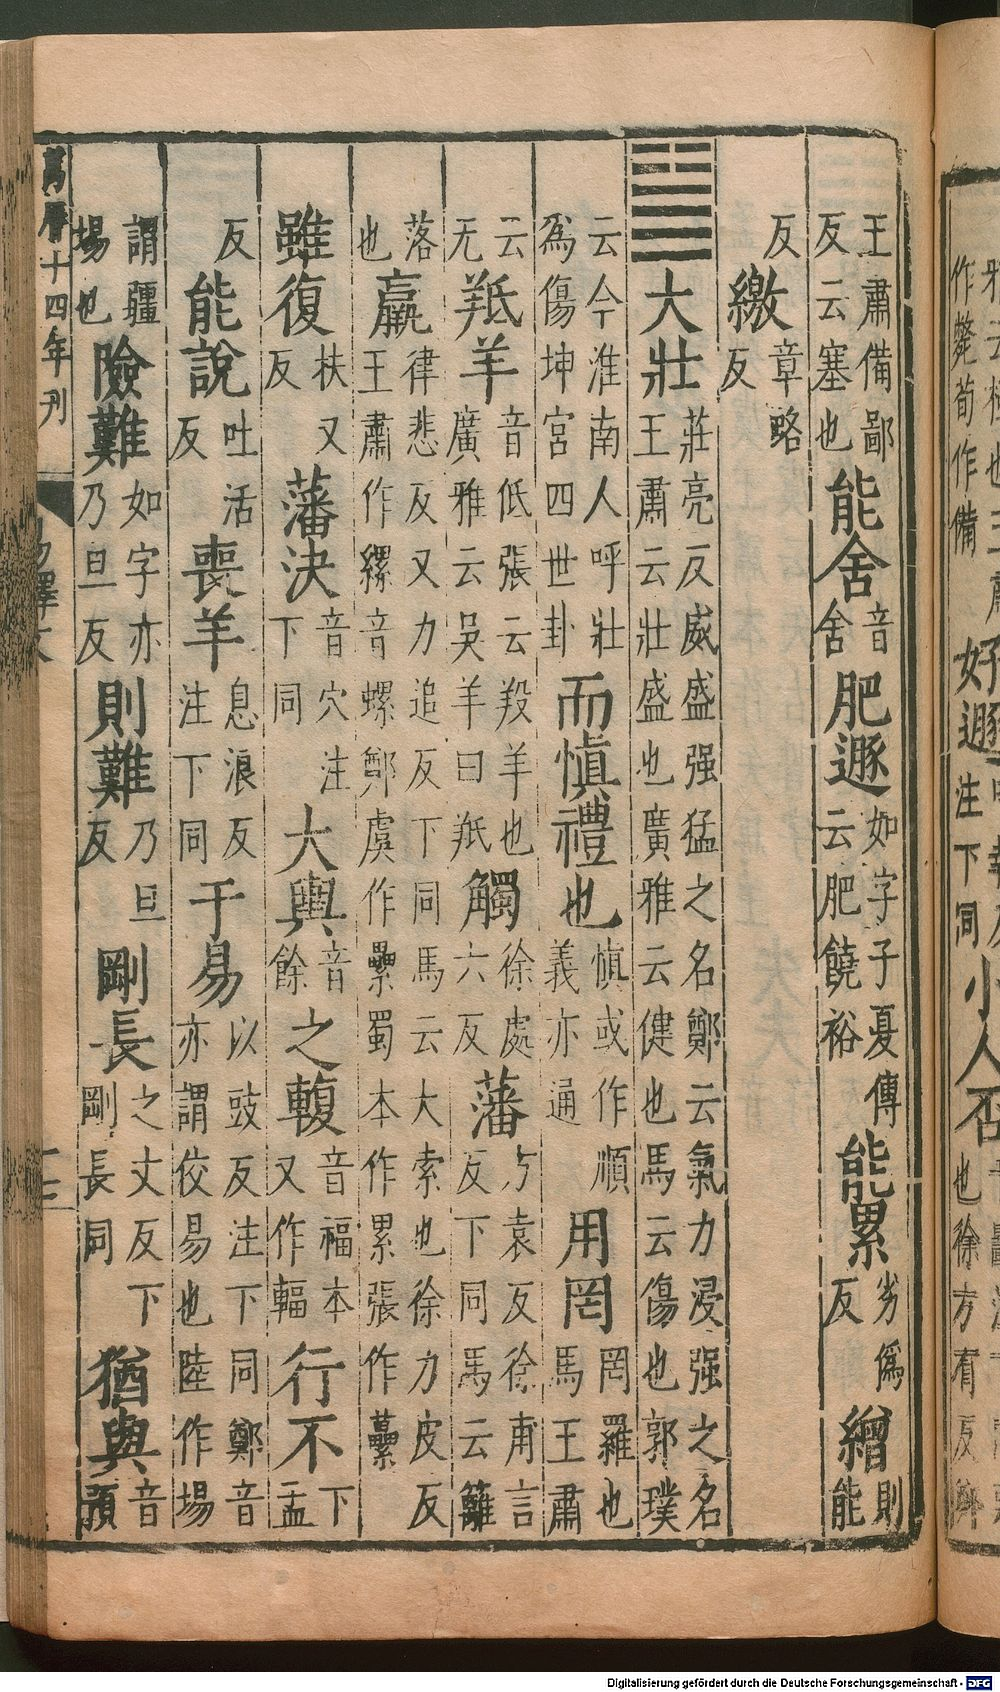 作斃荀作備 好遯 注下同 小人否 也徐方有反
王肅備鄙反云塞也 能舍 音舍 肥遯 如字子夏傳云肥饒裕 能累 劣爲反 繒 則能
反 繳 章略反
大壯 莊亮反威盛强猛之名鄭云氣力浸强之名王肅云壯盛也廣雅云健也馬云傷也郭璞
云今淮南人呼壯爲傷坤宮四世卦 而慎禮也 慎或作順義亦通 用罔 罔羅也馬王肅
云无 羝羊 音低張云羖羊也廣雅云吳羊曰羝 觸 徐處六反 藩 方袁反徐甫言反下同馬云籬
落也 羸 律悲反又力追反下同馬云大索也徐力皮反王肅作縲音螺鄭虞作纍蜀本作累張作虆
雖復 扶又反 藩決 音穴注下同 大輿 音餘 之輹 音福本又作輻 行不 下孟
反 能說 吐活反 喪羊 息浪反注下同 于易 以豉反注下同鄭音亦謂佼易也陸作場
謂疆場也 險難 如字亦乃旦反 則難 乃旦反 剛長 之丈反下剛長同 猶與 音預
萬曆十四年刊
Digitalisierung gefördert durch die Deutsche Forschungsgemeinschaft - DFG